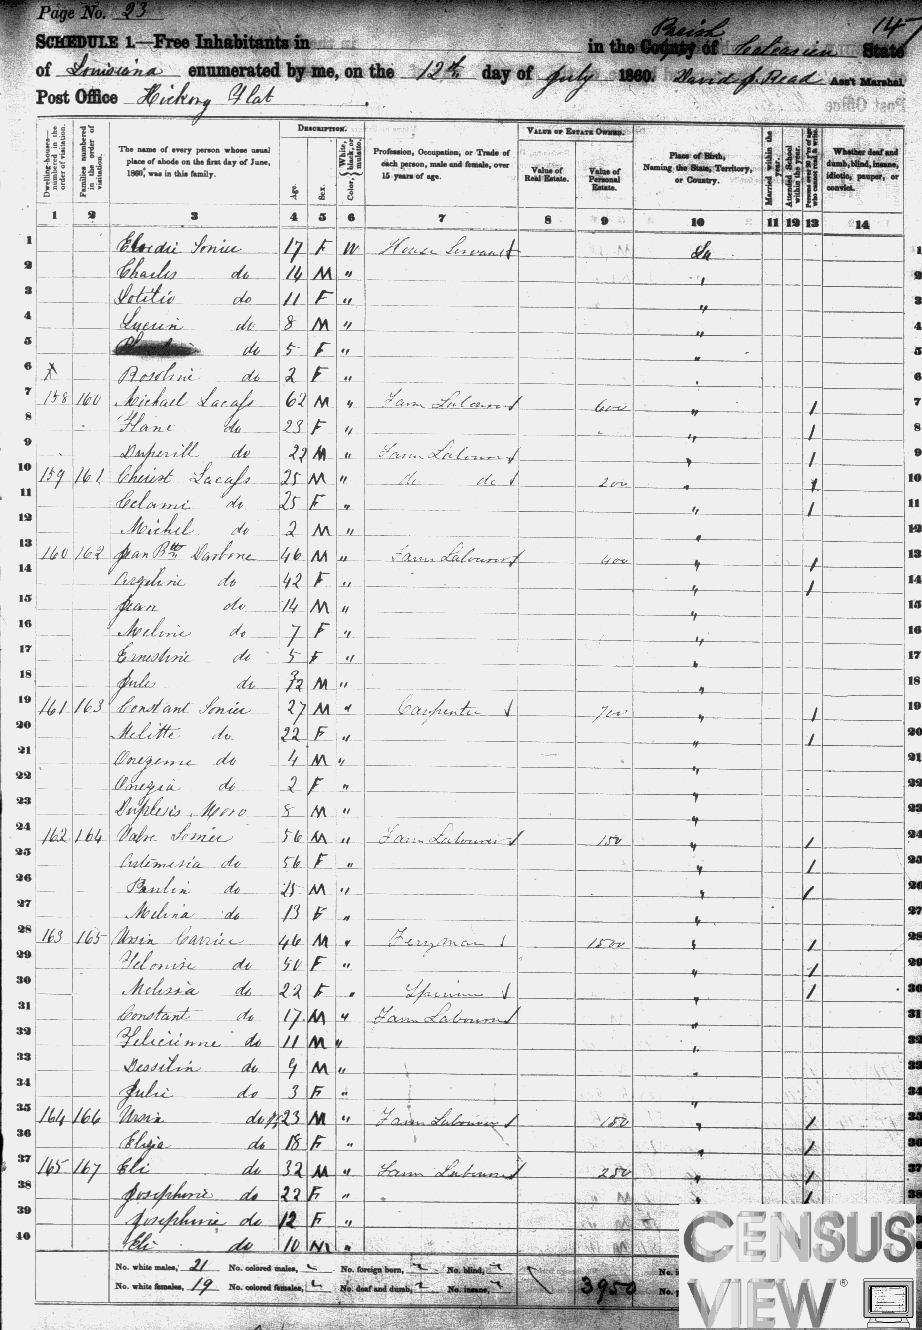 Page No. 23
147
SCHEDULE 1.—Free Inhabitants in in the County Parish of Calcasieu State
of Louisiana enumerated by me, on the 12th day of July 1860. David J. Read Ass't Marshal
Post Office Hickory Flat
Dwelling-houses—numbered in the order of visitation. Families numbered in the order of visitation. The name of every person whose usual place of abode on the first day of June, 1860, was in this family. DESCRIPTION. Age. Sex. Color, {White, black, or mulatto. Profession, Occupation, or Trade of each person, male and female, over 15 years of age. VALUE OF ESTATE OWNED. Value of Real Estate. Value of Personal Estate. Place of Birth, Naming the State, Territory, or Country. Married within the year. Attended School within the year. Persons over 20 y'rs of age who cannot read & write. Whether deaf and dumb, blind, insane, idiotic, pauper, or convict.
1 2 3 4 5 6 7 8 9 10 11 12 13 14
1 Sonier 17 F W House Servant La 1
2 Charles do 14 M " " 2
3 do 11 F " " 3
4 do 8 M " " 4
5 do 5 F " " 5
6 Rosoline do 2 F " 6
7 158 160 Michael Lacass 62 M " Farm Labourer 600 " / 7
8 do 23 F " " / 8
9 Duperill do 22 M " Farm Labourer " / 9
10 159 161 Lacass 25 M " do do 200 " / 10
11 do 25 F " " / 11
12 Michel do 2 M " " 12
13 160 162 Jean Btte Darbone 46 M " Farm Labourer 400 " / 13
14 do 42 F " " / 14
15 Jean do 14 M " " 15
16 Meline do 7 F " " 16
17 Ernestine do 5 F " " 17
18 Jules do M " " 18
19 161 163 Constant Sonier 27 M " Carpenter 700 " / 19
20 Melitte do 22 F " " / 20
21 Onezeme do 4 M " " 21
22 Onezia do 2 F " " 22
23 Duplesis Moro 8 M " " 23
24 162 164 Valre Sonier 56 M " Farm Labourer 150 " / 24
25 Artemesia do 56 F " " / 25
26 Paulin do 25 M " " / 26
27 Melina do 13 F " " 27
28 163 165 Ursin Carrier 46 M " Ferryman 1500 " / 28
29 do 50 F " " / 29
30 Melissa do 22 F " " / 30
31 Constant do 17 M " Farm Labourer " 31
32 Felicienne do 11 M " " 32
33 Dessilin do 9 M " 33
34 Julie do 3 F " " 34
35 164 166 Ursin do 23 M " Farm Labourer 150 " / 35
36 Eliza do 18 F " " / 36
37 165 167 Eli do 32 M " Farm Labourer 250 " / 37
38 Josephine do 22 F " " / 38
39 Josephine do 12 F " 
40 Eli do 10 M "
No. white males, 21 No. colored males, No. foreign born, No. blind,
No. white females, 19 No. colored females, No. deaf and dumb, No. insane, 3950
CENSUS
VIEW®